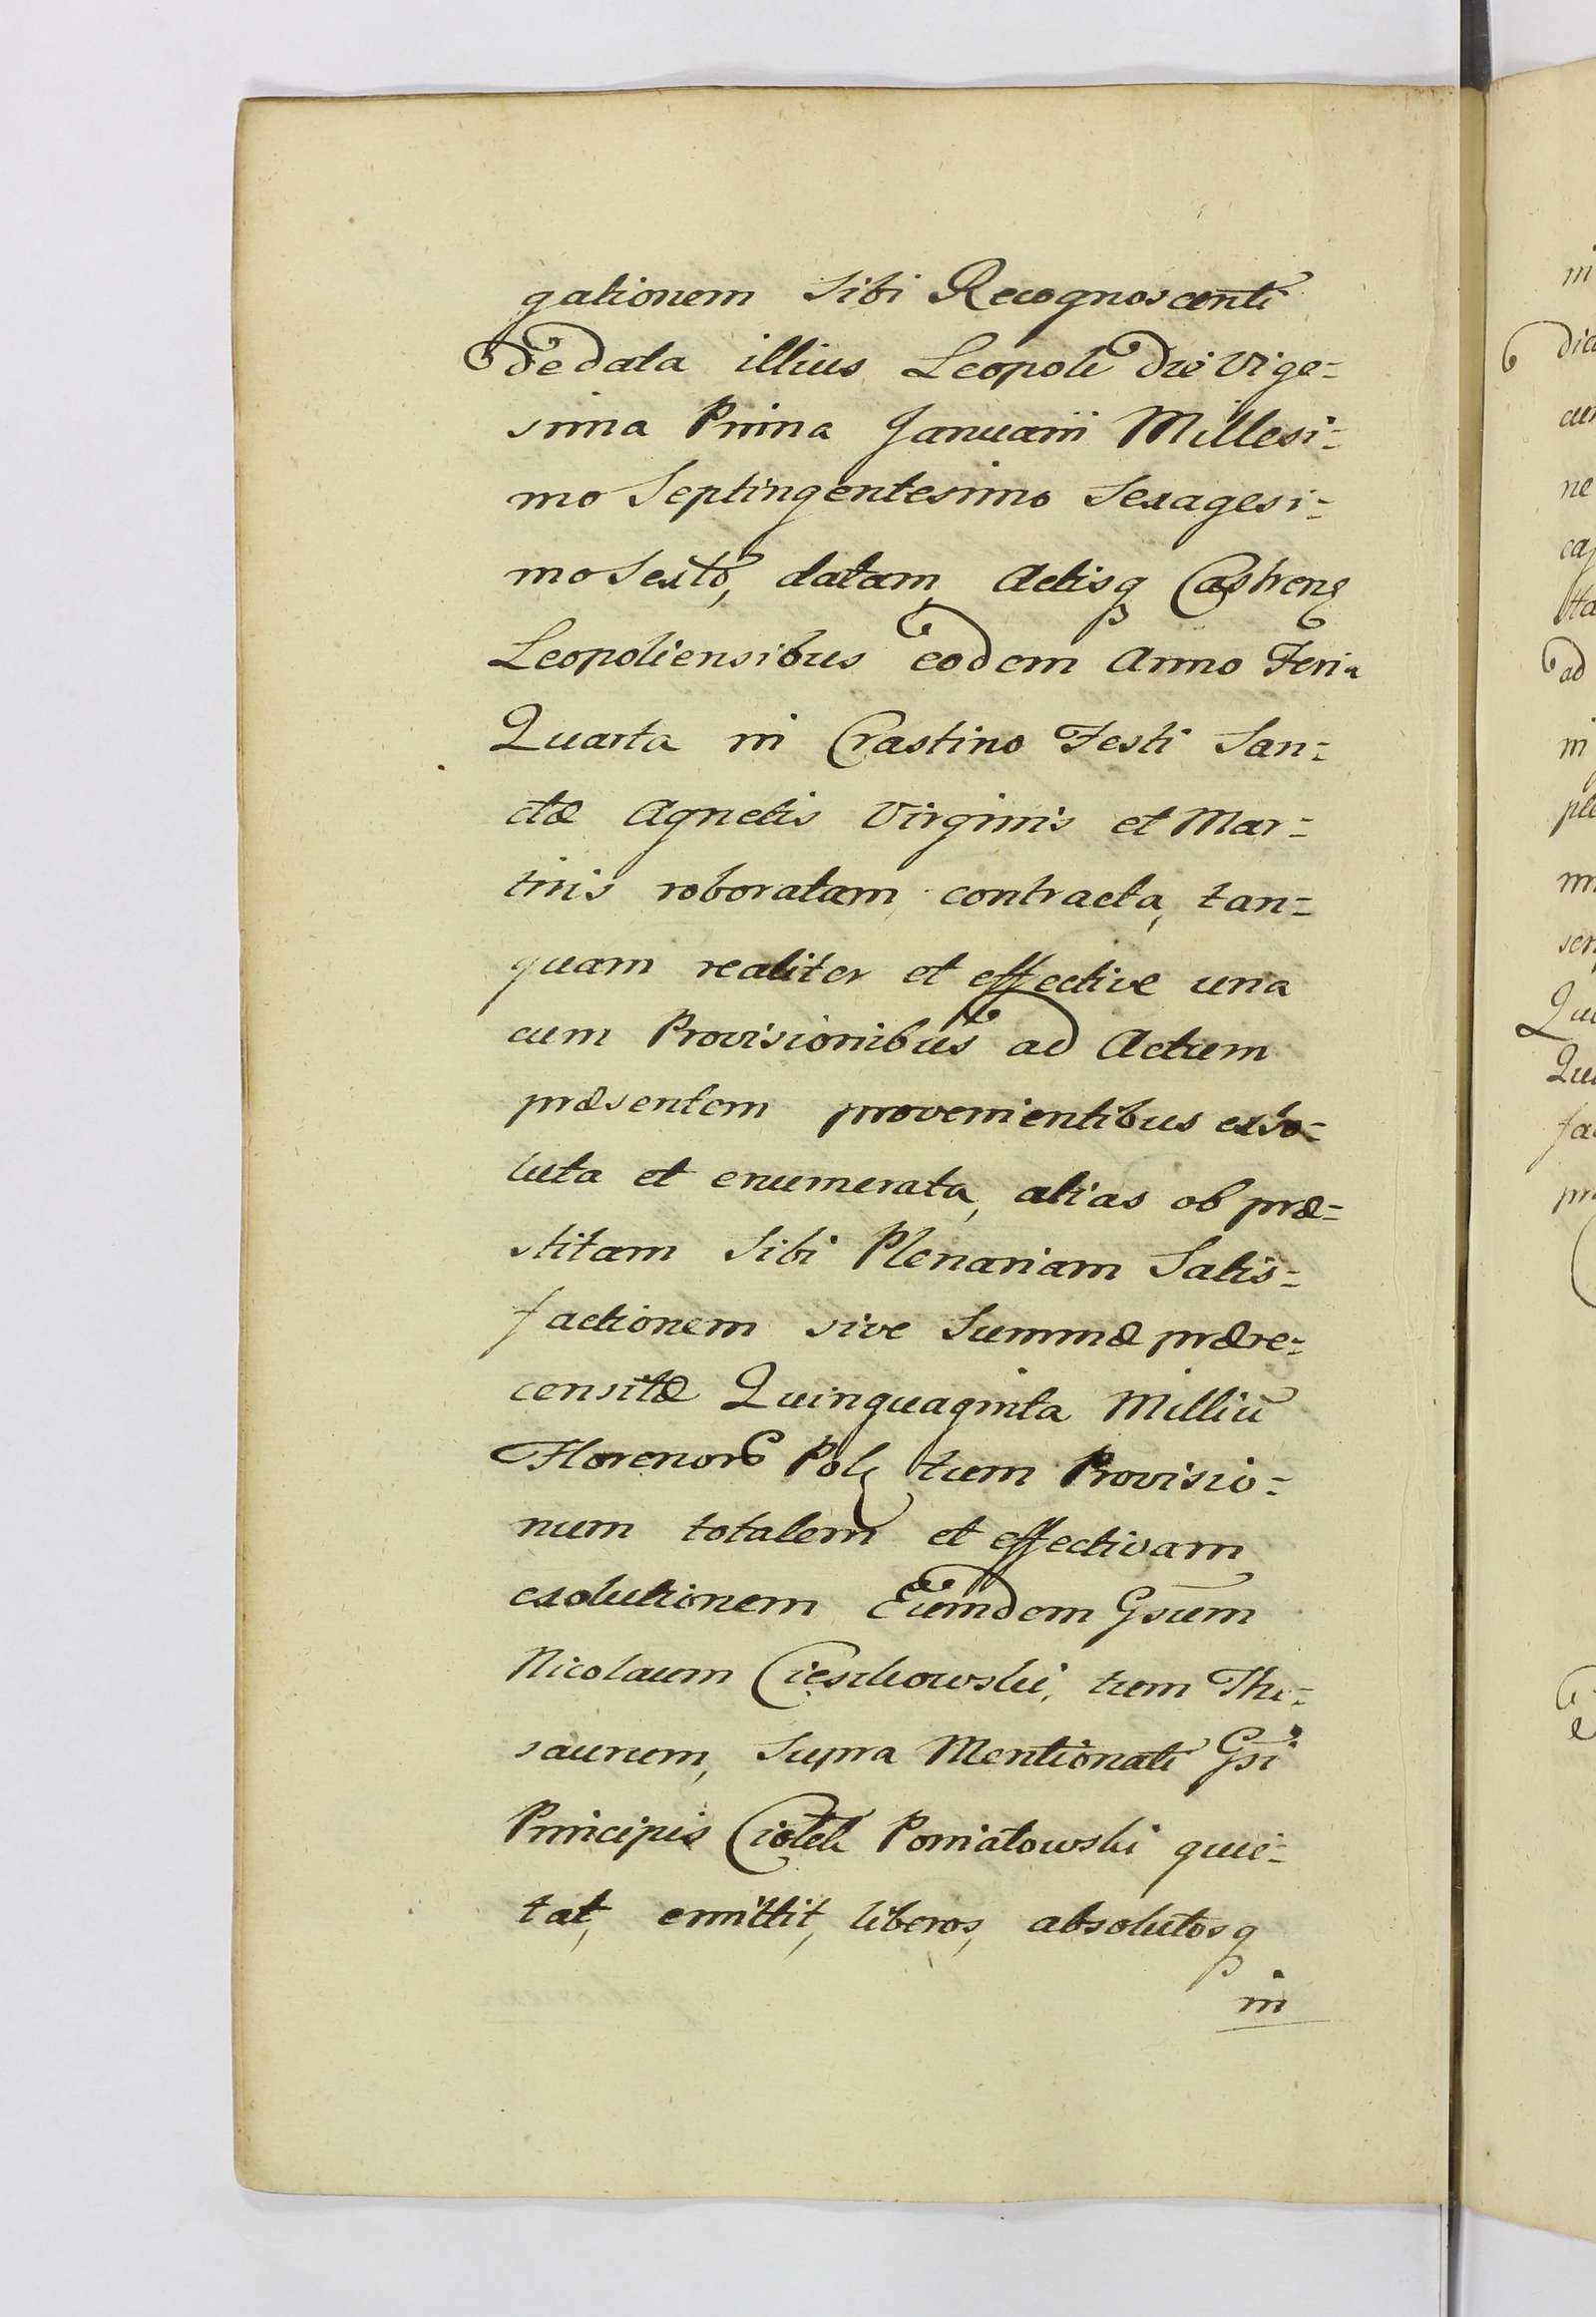 gationem Sibi Recognoscenti
de data illius Leopoli Die Vige=
sima Prima Januarii Millesi=
mo Septingentesimo Sexagesi=
mo Sexto, datam, Actisq Castren
Leopoliensibus eodem Anno Feria
Quarta in Crastino Festi San=
ctæ Agnetis Virginis et Mar=
tiris roboratam contracta, tan=
quam realiter et effective una
cum Provisionibus ad Actum
præsentem provenientibus exso=
luta et enumerata, alias ob præ=
stitam Sibi Plenariam Satis=
factionem sive Summæ prære=
censitæ Quinquaginta Milliū
Florenor Pol tum Provisio=
num totalem et effectivam
exolutionem Eumdem Gsum
Nicolaum Cieszkowski, tum The=
saurum, Supra Mentionati Gsi
Principis Ciołek Poniatowski quie=
tat, emittit, liberos, absolutosq
in